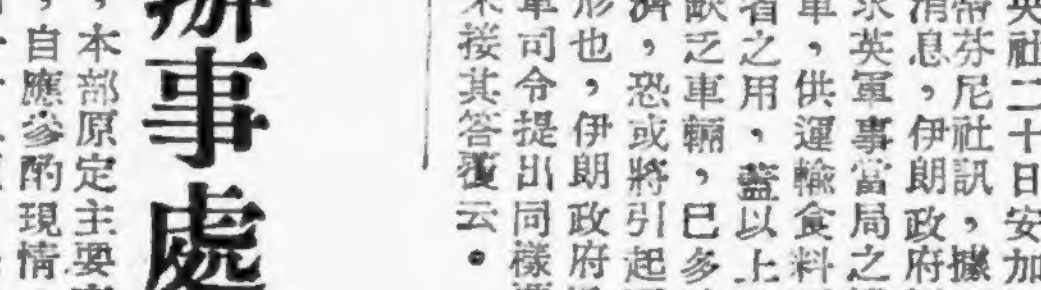 英社二十日安加
幣芬尼社訊，據
消息，伊朗政府
求英軍事當局之
軍，供運輸食料
者之用，蓋以上
缺乏車輛，已多
濟，恐或將引起
形也，伊朗政府
軍司令提出同樣
未接其答覆云。
辦事處
本部原定主要
自應參酌現情